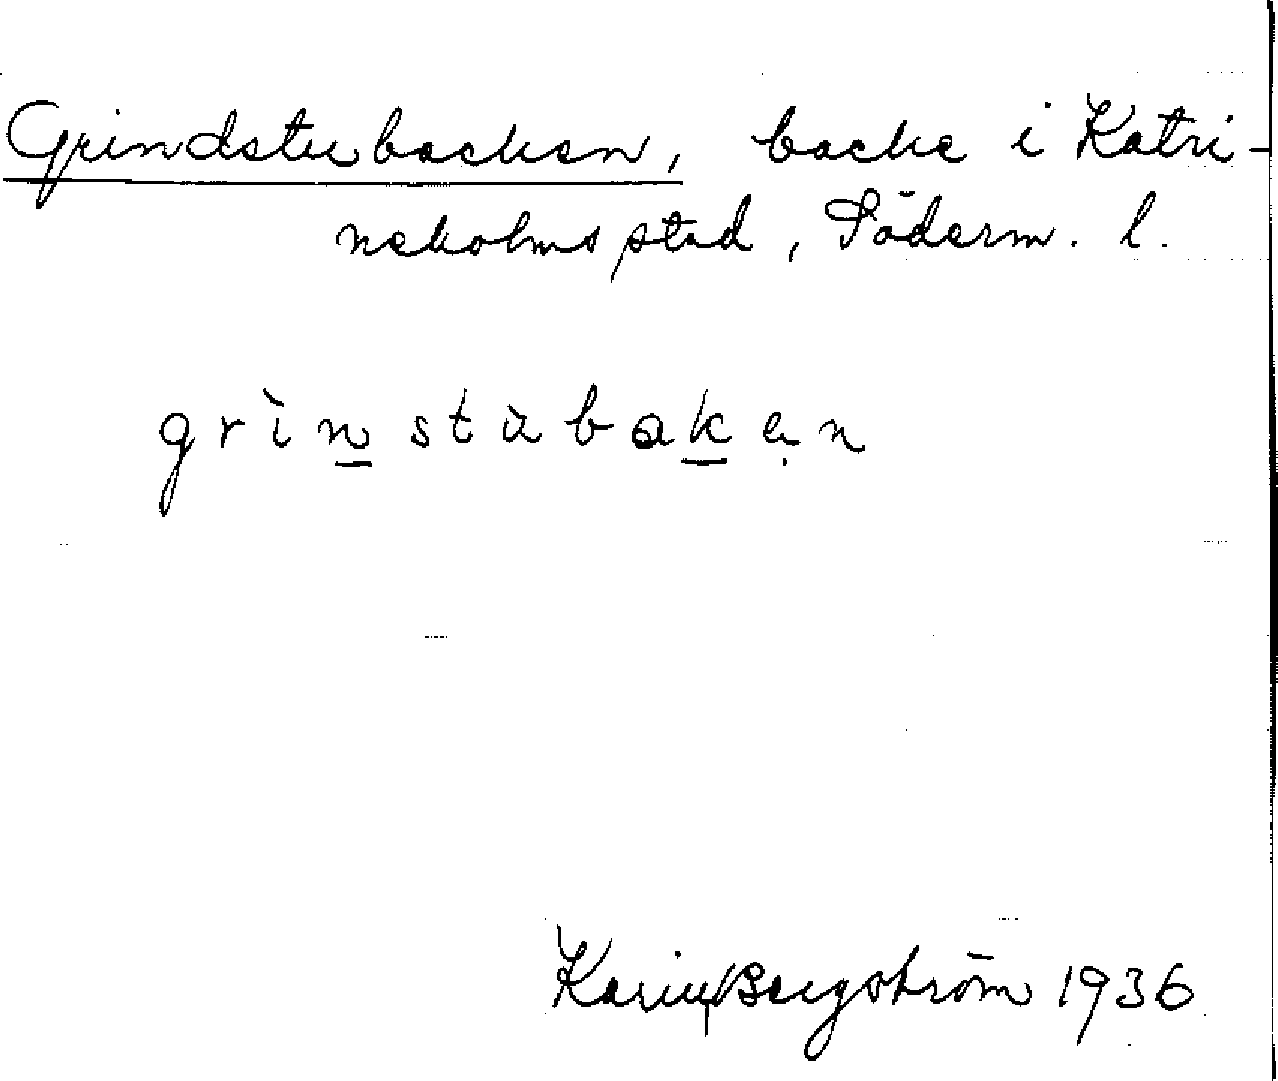 Grindstubacken, backe i Katri-
neholms stad, Söderm. l.
grìn̲stùbak̲ẹn
Karin Bergström 1936